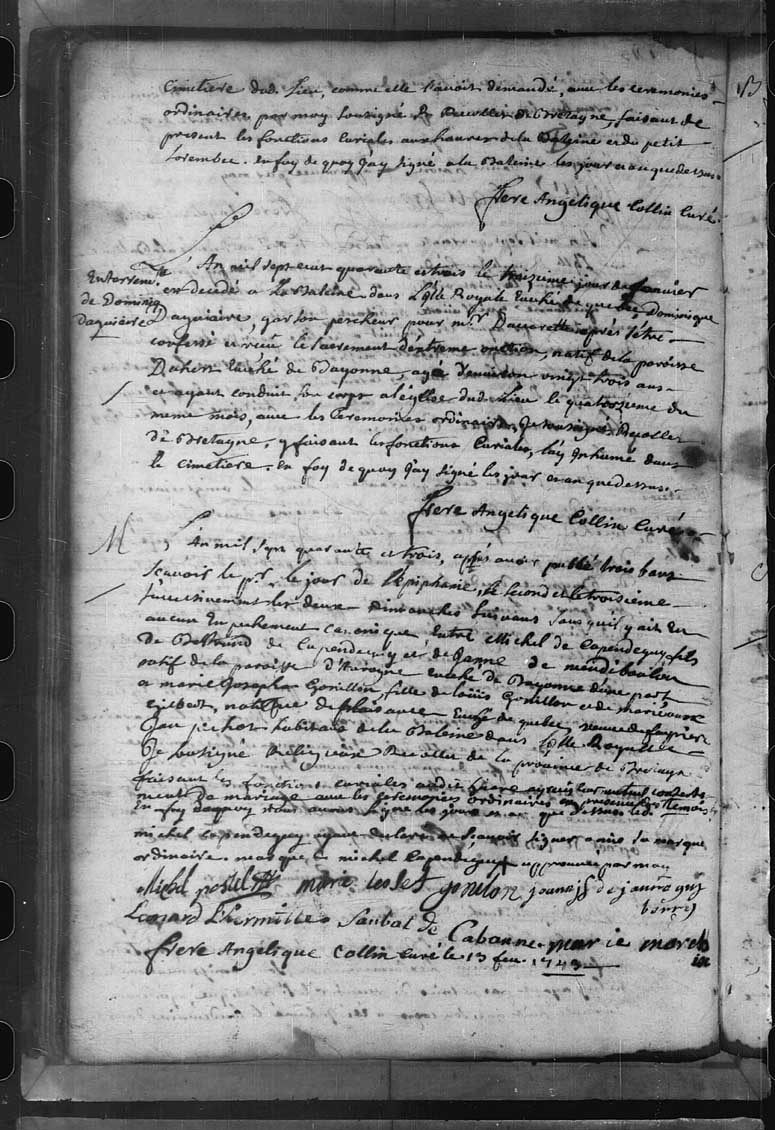 Cimetiere dud. Lieu, comme elle l'avoit demandé, avec les ceremonies
ordinaires, par moy soussigné Recollet de Bretagne, faisant de
present les fonctions Curiales aux havres de la Baleine et du petit
Lorembec. en foy de quoy j'ay signé a la Baleine les jour et an que dessus.
frere Angelique Collin Curé
L'An mil sept cent quarante et trois le treizieme jour de janvier
est decedé a La Baleine dans L'isle Royale Eveché de quebec, Dominique
Enterrem.t
de Dominiq
Daguiairre
Daguiaire, garson pescheur pour m.r Daccarette après s'etre
confessé et reçeu le sacrement d'extreme onction, natif de la paroisse
Eveché de Bayonne, agé d'environ vingt trois ans
et ayant conduit son corps a l'église dud. Lieu le quatorzieme du
meme mois, avec les Ceremonies ordinaires, Je soussigné Recollet
de Bretagne, y faisant les fonctions Curiales, l'ay Inhumé dans
le Cimetiere. en foy de quoy J'ay signé les jour et an que dessus.
frere Angelique Collin Curé
M
L'An mil sept quarante et trois, après avoir publié trois bans
Scavoir le pr. le jour de l'Epiphanie, le second et le troisieme
successivement les deux dimanches suivans sans qu'il y ait eu
aucun Empechement canonique Entre Michel de Capendeguy, fils
De Bertrand de Capendeguy et de Janne de
natif de la paroisse Eveché de Bayonne d'une part
et marie Josephe Gonillon, fille de loüis Gonillon et de marie
Gilbert, native de plaisance Eveché de quebec, veuve de
Jan pichot habitans de la Baleine dans l'isle Royale
Je soussigné Religieux Recollet de la province de Bretagne
faisant les fonctions curiales audit havre ay reçu leur mutuel consente
ment de mariage avec les ceremonies ordinaires en presence des temoins
En foy dequoy nous avons signé les jour et an que dessus led.
michel Capendeguy ayant declaré ne scavoir signer a mis sa marque
ordinaire. marque michel Capendeguy approuvée par moy
Michel marie Josef gonilon
Leonard L'hermitte Saubat de Cabanne. marie
frere Angelique Collin Curé le 13 feu. 1743